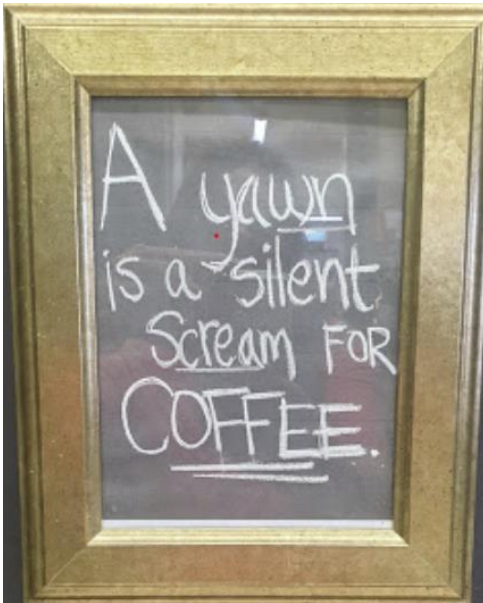 A yawn
is a silent
Scream FOR
COFFEE.